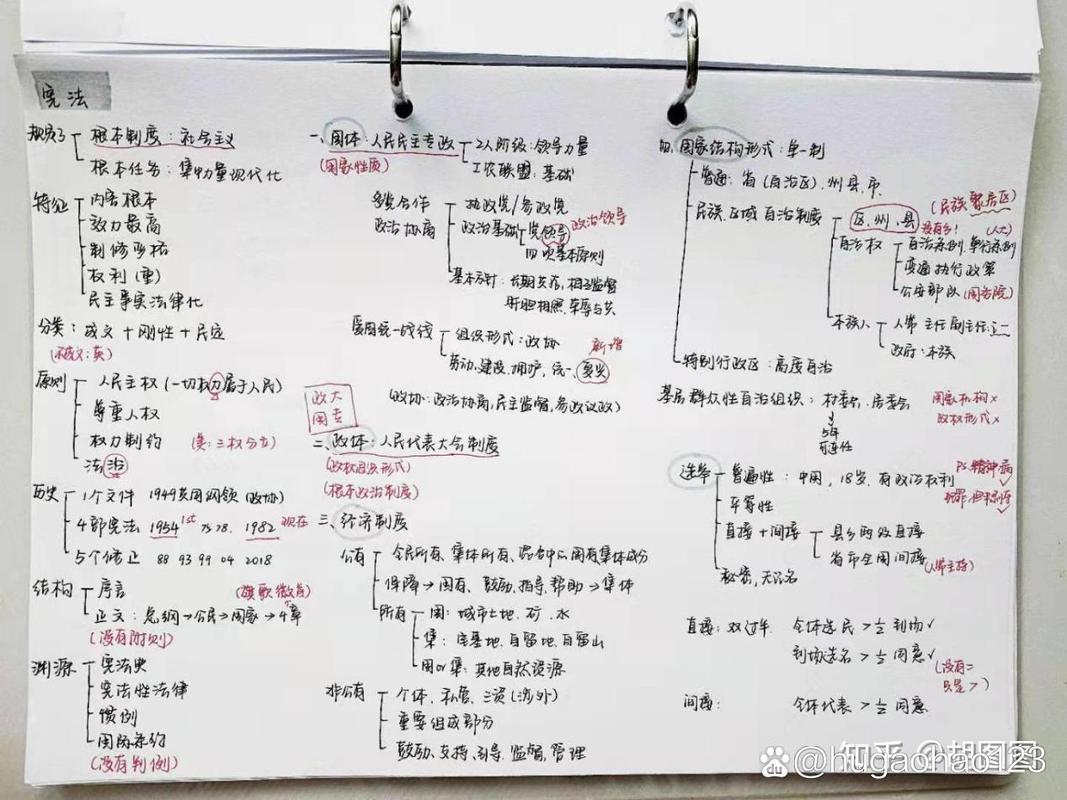 宪法
规定了 根本制度：社会主义
根本任务：集中力量现代化
特征 内容根本
效力最高
制修严格
权利(重)
民主事实法律化
分类：成文+刚性+民定
(不成文：英)
原则 人民主权(一切权力属于人民)
尊重人权
权力制约 (美：三权分立)
法治
历史 1个文件 1949共同纲领(政协)
4部宪法 1954 1st 75 78. 1982 现在
5个修正 88 93 99 04 2018
结构 序言 (旗歌徽首)
正文：总纲→公民→国家→4章
(没有附则)
渊源 宪法典
宪法性法律
惯例
国际条约
(没有判例)
一、国体：人民民主专政 工人阶级：领导力量
(国家性质) 工农联盟：基础
多党合作 执政党/参政党
政治协商 政治基础 党领导 政治领导
四项基本原则
基本方针：长期共存，相互监督
肝胆相照，荣辱与共
爱国统一战线 组织形式：政协 新增
劳动、建设、拥护、统一、复兴
(政协：政治协商,民主监督,参政议政)
政大
国专
二、政体：人民代表大会制度
(政权组织形式)
(根本政治制度)
三、经济制度
公有 全民所有、集体所有、混合中的国有集体成分
保障→国有、鼓励、指导、帮助→集体
所有 国：城市土地、矿、水
集：宅基地、自留地、自留山
国or集：其他自然资源
非公有 个体、私营、三资(涉外)
重要组成部分
鼓励、支持、引导、监督、管理
四、国家结构形式：单一制
普通：省(自治区)、州县、市
民族区域自治制度 区、州、县 (民族聚居区)
没有乡！ (人大)
自治权 自治条例,单行条例
变通执行政策
公安部队 (国务院)
本族人 人常 主任副主任：之一
政府：本族
特别行政区：高度自治
基层群众性自治组织：村委会、居委会 国家机构×
政权形式×
5年
可连任
选举 普遍性：中国，18岁，有政治权利 PS.精神病✓
平等性
直接+间接 县乡两级直接
省市全国间接 (人常主持)
秘密,无记名
直接：双过半 全体选民>½到场✓
到场选名>½同意✓
(没有=
只是>)
间接： 全体代表>½同意
知乎 @胡图图
@hugaohao123